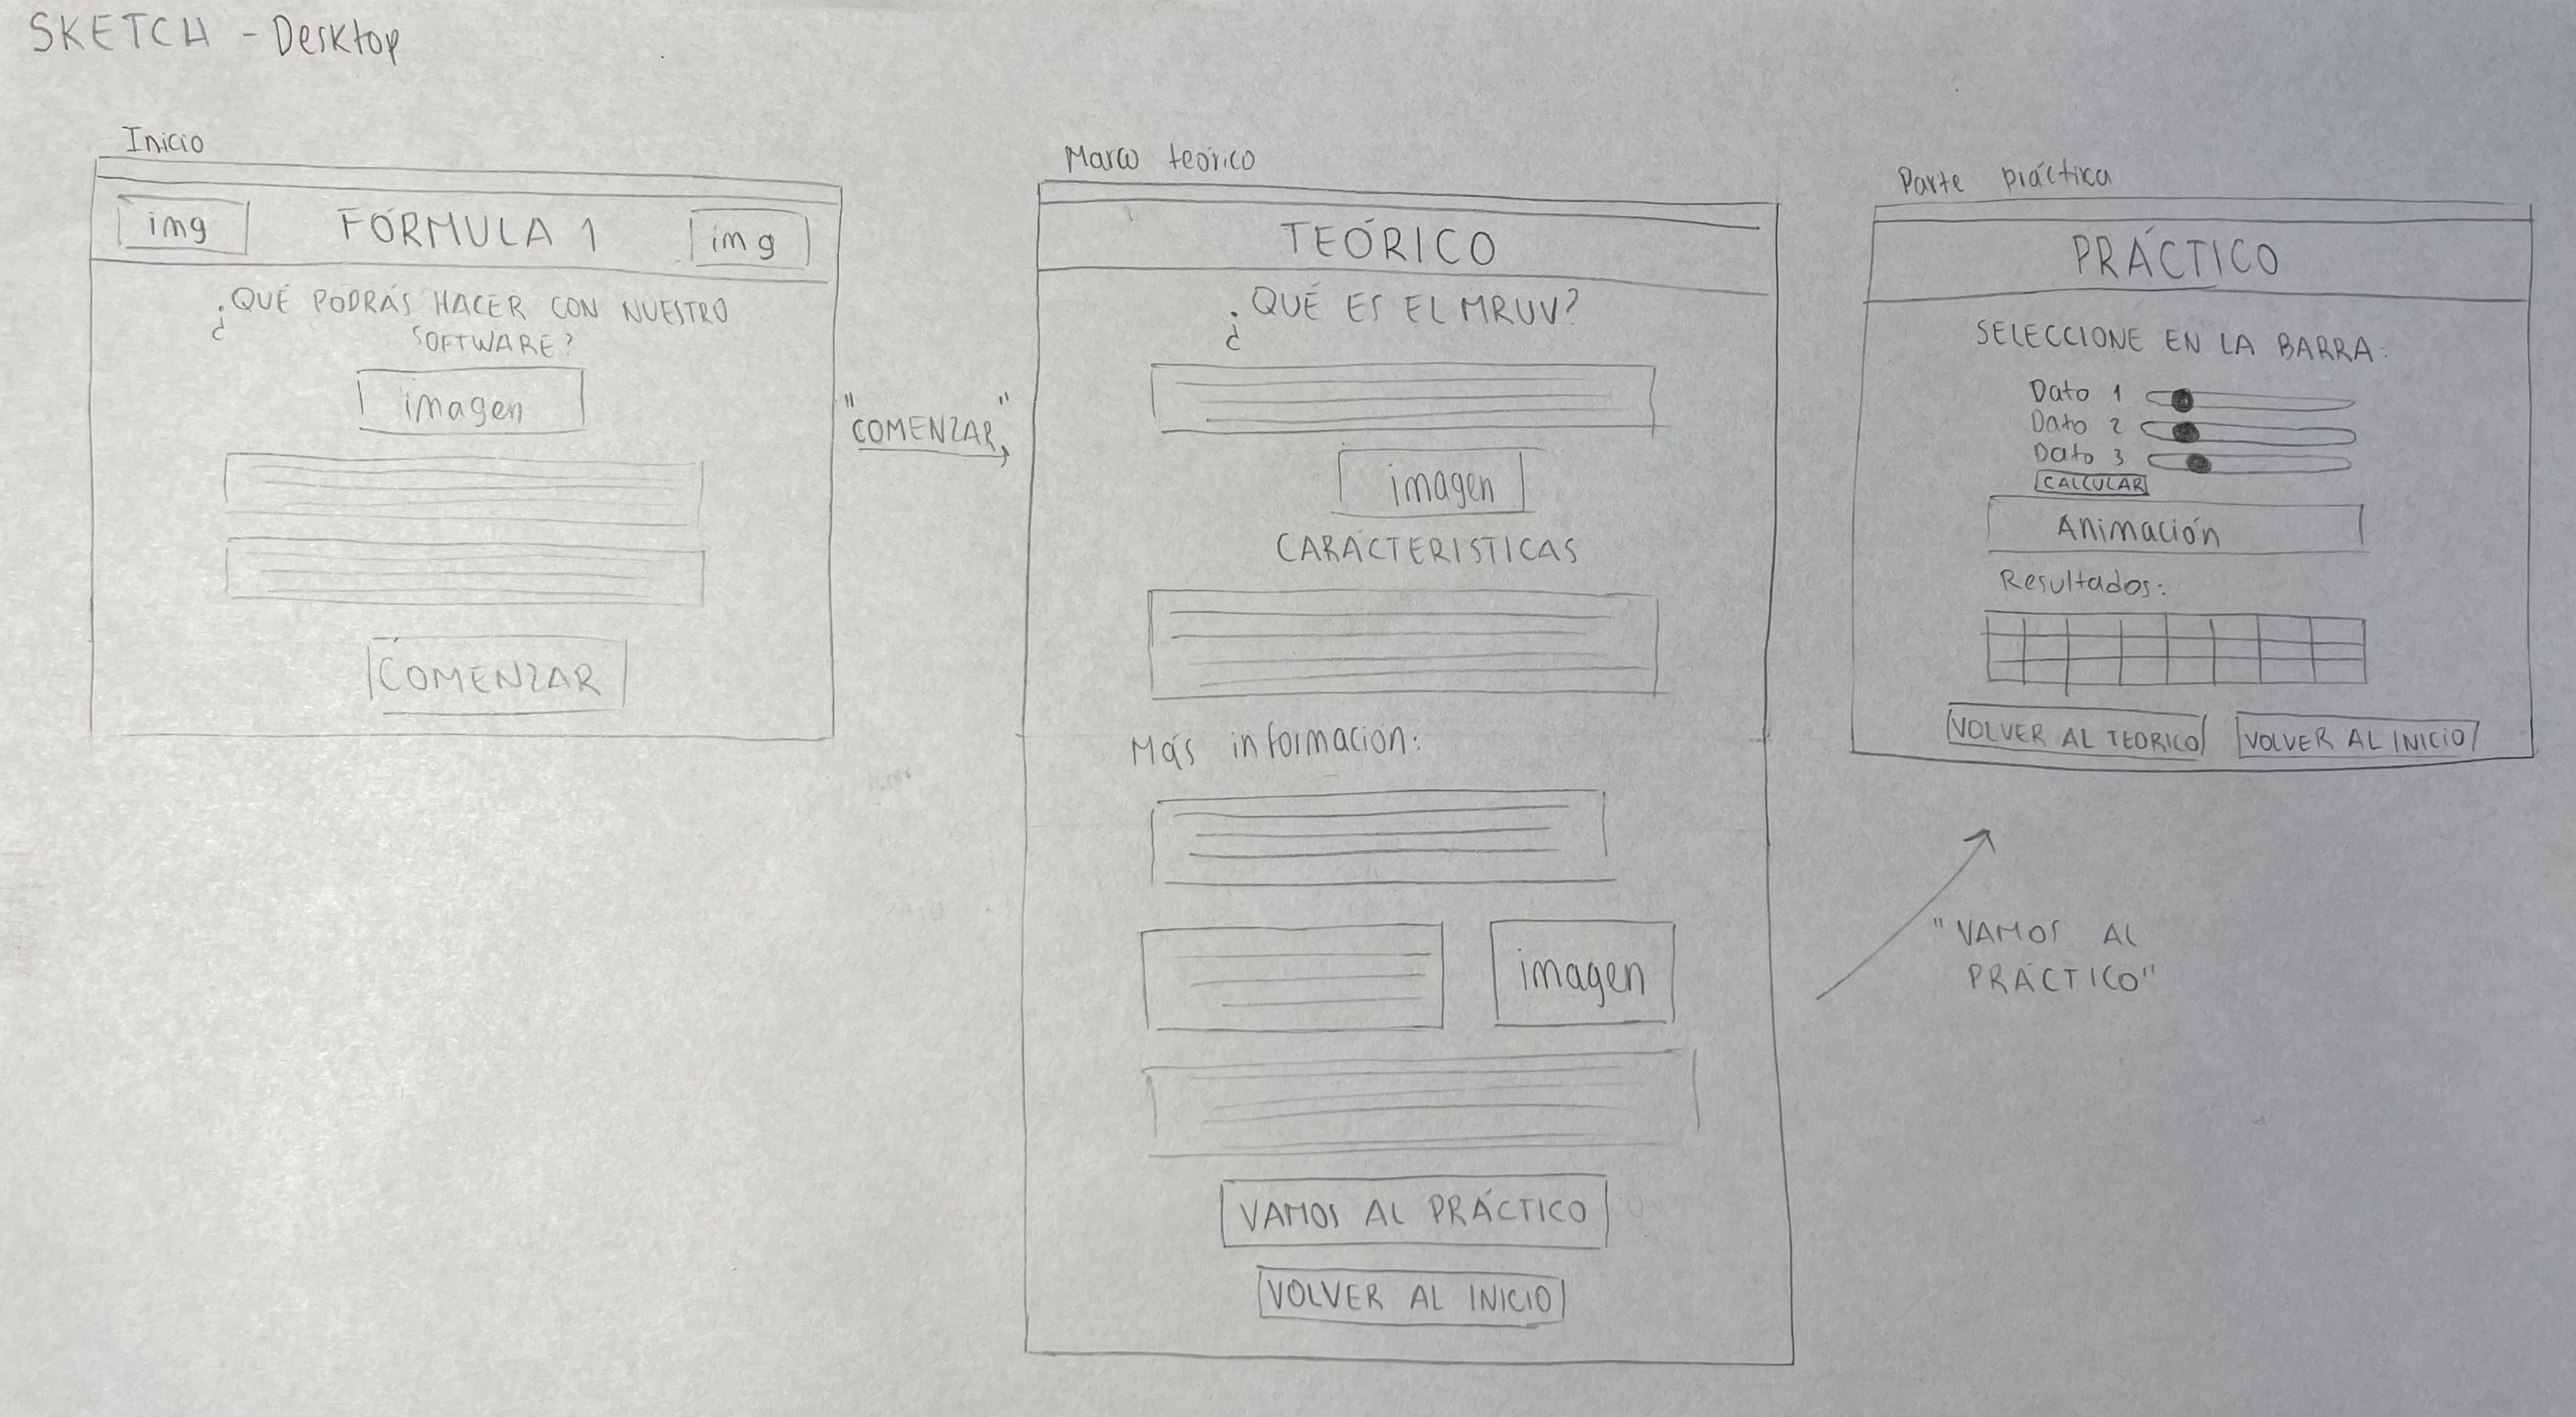 SKETCH - Desktop
Inicio
img
FÓRMULA 1
img
¿QUÉ PODRÁS HACER CON NUESTRO
SOFTWARE?
imagen
COMENZAR
"COMENZAR"
Marco teórico
TEÓRICO
¿QUÉ ES EL MRUV?
imagen
CARÁCTERISTICAS
Más información:
imagen
VAMOS AL PRÁCTICO
VOLVER AL INICIO
Parte práctica
PRÁCTICO
SELECCIONE EN LA BARRA:
Dato 1
Dato 2
Dato 3
CALCULAR
Animación
Resultados:
VOLVER AL TEÓRICO
VOLVER AL INICIO
"VAMOS AL
PRÁCTICO"